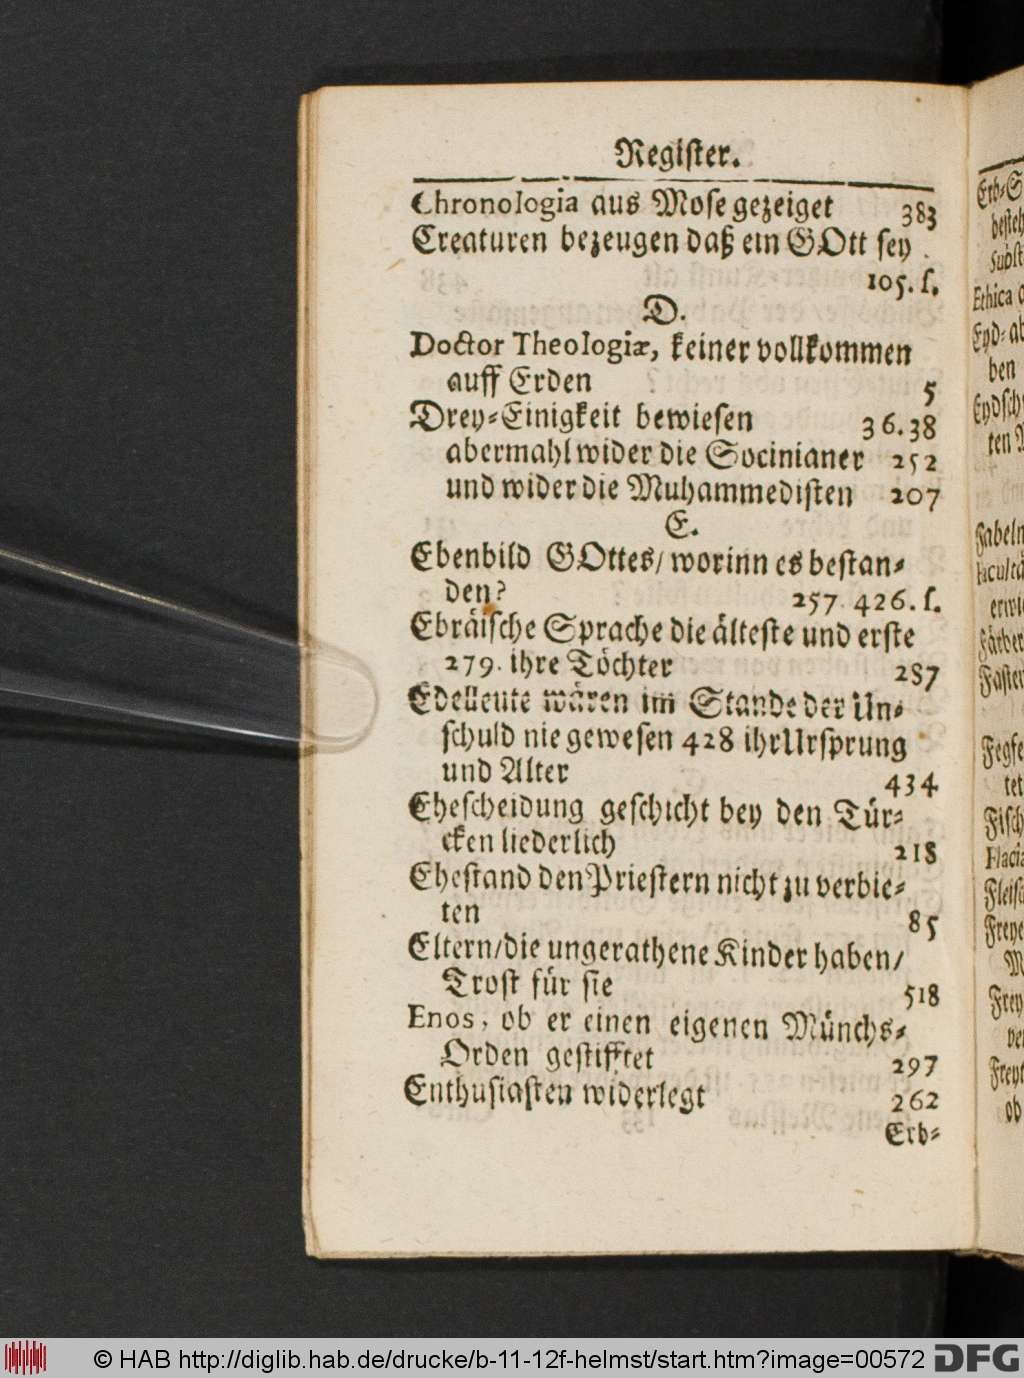 Register.
Chronologia aus Mose gezeiget 383
Creaturen bezeugen daß ein GOtt sey
105. s.
D.
Doctor Theologiæ, keiner vollkommen
auff Erden 5
Drey-Einigkeit bewiesen 36.38
abermahl wider die Socinianer 252
und wider die Muhammedisten 207
E.
Ebenbild GOttes/ worinn es bestan-
den? 257. 426. s.
Ebräische Sprache die älteste und erste
279. ihre Töchter 287
Edelleute wären im Stande der Un-
schuld nie gewesen 428 ihr Ursprung
und Alter 434
Ehescheidung geschicht bey den Tür-
cken liederlich 218
Ehestand den Priestern nicht zu verbie-
ten 85
Eltern/die ungerathene Kinder haben/
Trost für sie 518
Enos, ob er einen eigenen Münchs-
Orden gestifftet 297
Enthusiasten widerlegt 262
Erb-
Erb-S
besteh
Subst
Ethica
Eyd-ab
ben
Eydsch
ten
Fabeln
Facultä
erwi
Färber
Faster
Fegfe
tet
Fisch
Flacia
Fleisch
Freye
Frey
Freyt
ob
© HAB http://diglib.hab.de/drucke/b-11-12f-helmst/start.htm?image=00572 DFG